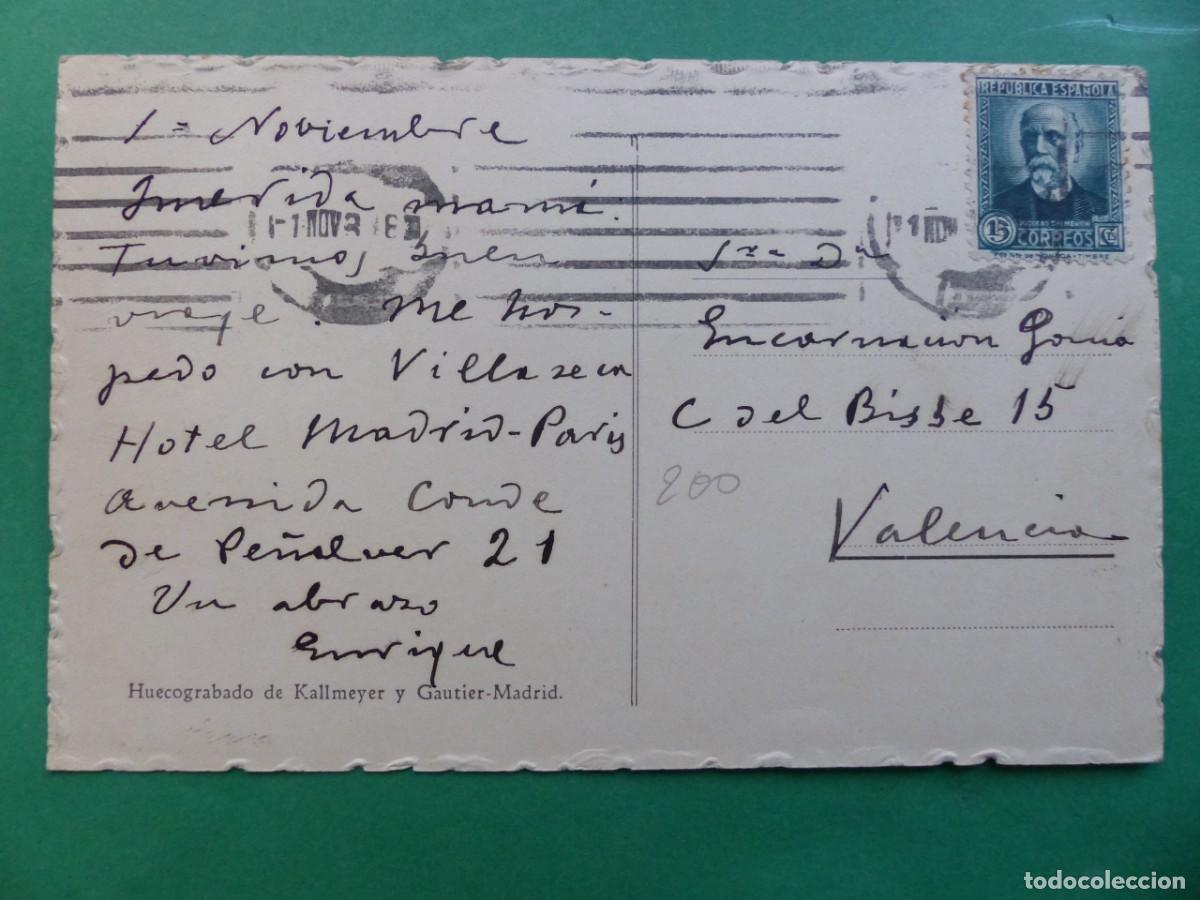 1º Noviembre
Querida mamá:
Tuvimos buen
viaje. Me hos-
pedo con Villaseca
Hotel Madrid-Paris
Avenida Conde
de Peñalver 21
Un abrazo
Enrique
Huecograbado de Kallmeyer y Gautier-Madrid.
REPUBLICA ESPAÑOLA
15
CORREOS
Cts
1 NOV 3
Sra Da
Encarnación
C del Bisbe 15
200
Valencia
todocoleccion